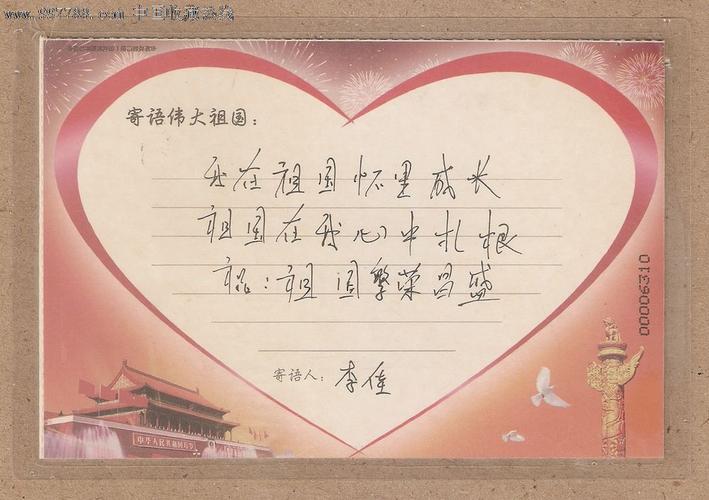 www.997788.com 中国收藏热线
寄语伟大祖国：
我在祖国怀里成长
祖国在我心中扎根
祝：祖国繁荣昌盛
寄语人：李佳
00006310